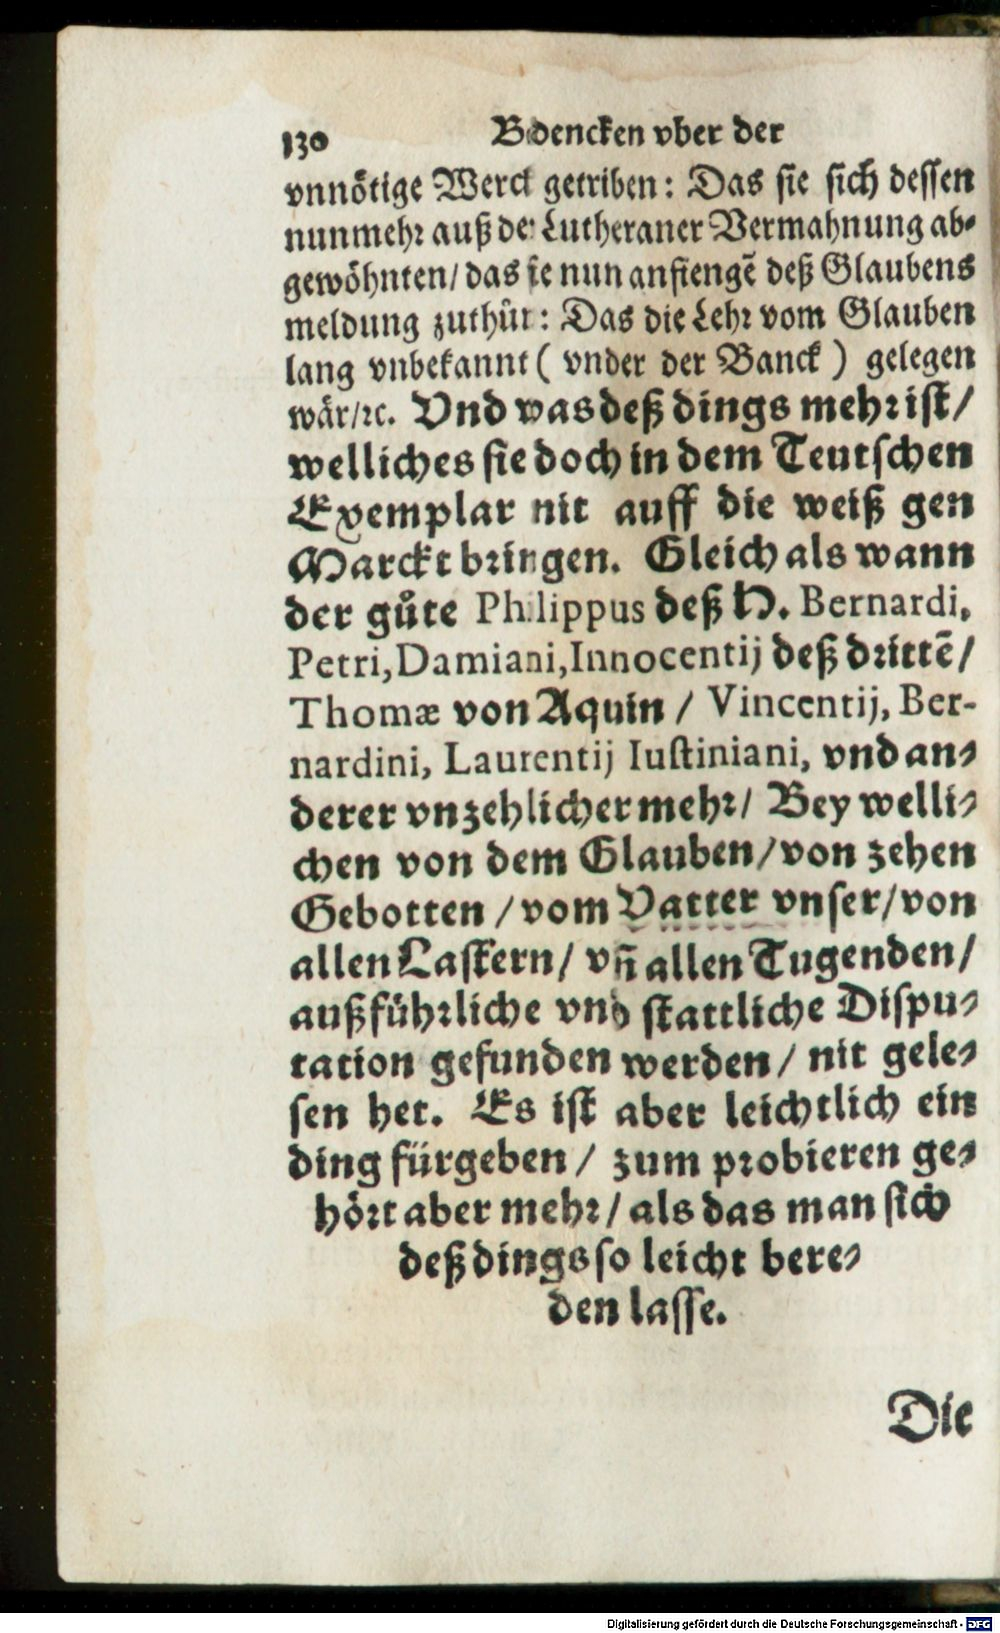 130 Bedencken vber der
vnnötige Werck getriben: Das sie sich dessen
nunmehr auß der Lutheraner Vermahnung ab⸗
gewöhnten/ das sie nun anfiengē deß Glaubens
meldung zuthůn: Das die Lehr vom Glauben
lang vnbekannt ( vnder der Banck ) gelegen
wär/ꝛc. Vnd was deß dings mehr ist/
welliches sie doch in dem Teutschen
Exemplar nit auff die weiß gen
Marckt bringen. Gleich als wann
der gůte Philippus deß H. Bernardi,
Petri, Damiani, Innocentij deß drittē/
Thomæ von Aquin / Vincentij, Ber-
nardini, Laurentij Iustiniani, vnd an⸗
derer vnzehlicher mehr/ Bey welli⸗
chen von dem Glauben/ von zehen
Gebotten / vom Vatter vnser/ von
allen Lastern/ vñ allen Tugenden/
außführliche vnd stattliche Dispu⸗
tation gefunden werden/ nit gele⸗
sen het. Es ist aber leichtlich ein
ding fürgeben/ zum probieren ge⸗
hört aber mehr/ als das man sich
deß dings so leicht bere⸗
den lasse.
Die
Digitalisierung gefördert durch die Deutsche Forschungsgemeinschaft - DFG